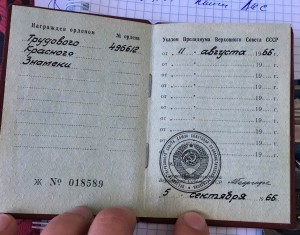 Награжден орденом № ордена
Трудового 496612
Красного
Знамени
Ж № 018589
Указом Президиума Верховного Совета СССР
от „11" августа 1966 г.
от „ " 19 г.
от „ " 19 г.
от „ " 19 г.
от „ " 19 г.
от „ " 19 г.
от „ " 19 г.
от „ " 19
СССР
5 сентября 1966 г.